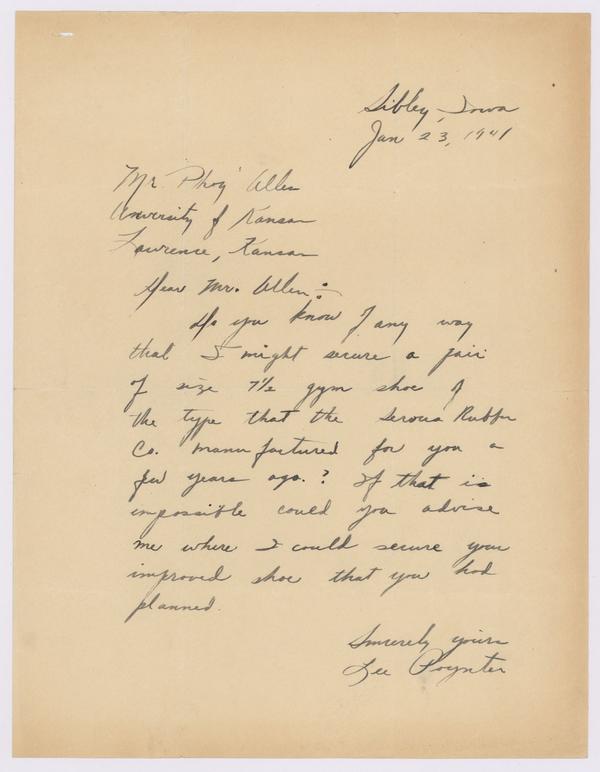 Sibley, Iowa
Jan 23, 1941
Mr. "Phog" Allen
University of Kansas
Lawrence, Kansas
Dear Mr. Allen:
Do you know of any way
that I might secure a pair
of size 7½ gym shoe of
the type that the Servus Rubber
Co. manufactured for you a
few years ago.? If that is
impossible could you advise
me where I could secure your
improved shoe that you had
planned.
Sincerely yours
Lee Poynter